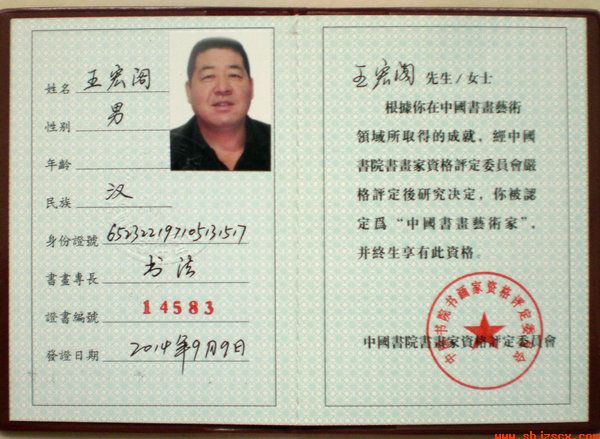 姓名 王宏阁
性别 男
年齡
民族 汉
身份證號 652322197105131517
書畫專長 书法
證書編號 14583
發證日期 2014年9月9日
王宏阁 先生/女士
根據你在中國書畫藝術
領域所取得的成就，經中國
書院書畫家資格評定委員會嚴
格評定後研究決定，你被認
定爲“中國書畫藝術家”，
并終生享有此資格。
中國書院書畫家資格評定委員會
中国书院书画家资格评定委员会